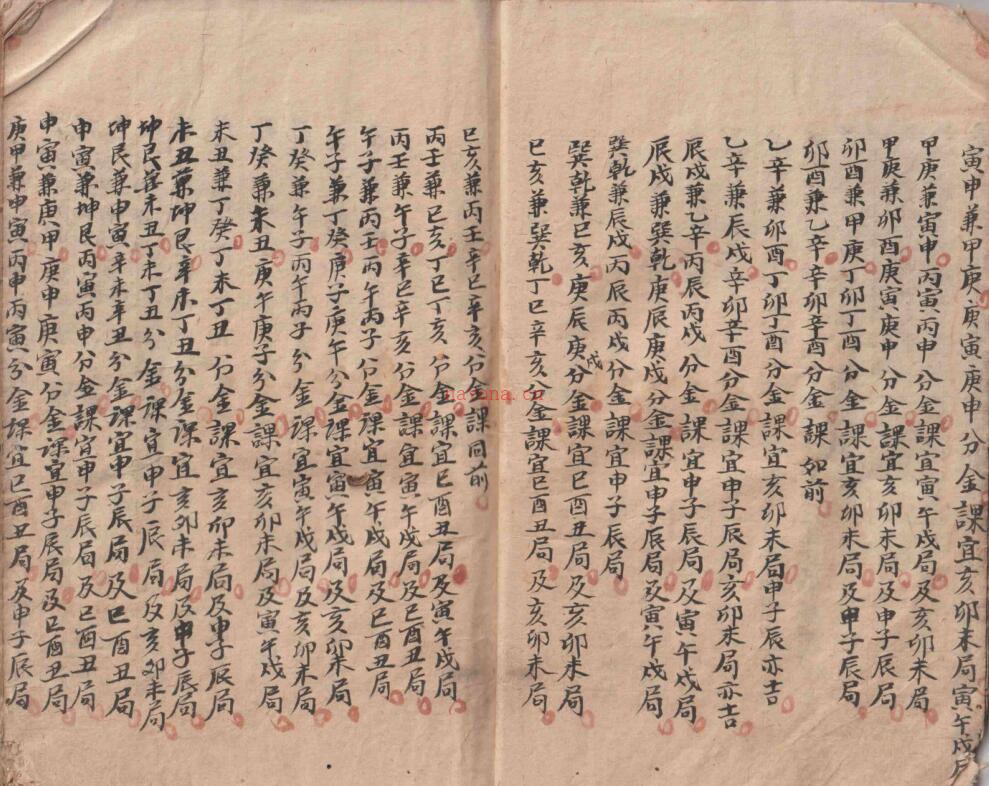 寅申兼甲庚庚寅庚申分金課宜亥卯未局寅午戌局
甲庚兼寅申丙寅丙申分金課宜寅午戌局及亥卯未局
甲庚兼卯酉庚寅庚申分金課宜亥卯未局及申子辰局
卯酉兼甲庚丁卯丁酉分金課宜亥卯未局及申子辰局
卯酉兼乙辛辛卯辛酉分金課如前
乙辛兼卯酉丁卯丁酉分金課宜亥卯未局申子辰亦吉
乙辛兼辰戌辛卯辛酉分金課宜申子辰局亥卯未局亦吉
辰戌兼乙辛丙辰丙戌分金課宜申子辰局及寅午戌局
辰戌兼巽乾庚辰庚戌分金課宜申子辰局及寅午戌局
巽乾兼辰戌丙辰丙戌分金課宜申子辰局
巽乾兼巳亥庚辰庚戌分金課宜巳酉丑局及亥卯未局
巳亥兼巽乾丁巳辛亥分金課宜巳酉丑局及亥卯未局
巳亥兼丙壬辛巳辛亥分金課同前
丙壬兼巳亥丁巳丁亥分金課宜巳酉丑局及寅午戌局
丙壬兼午子辛巳辛亥分金課宜寅午戌局及巳酉丑局
午子兼丙壬丙午丙子分金課宜寅午戌局及巳酉丑局
午子兼丁癸庚子庚午分金課宜寅午戌局及亥卯未局
丁癸兼午子丙午丙子分金課宜寅午戌局及亥卯未局
丁癸兼未丑庚午庚子分金課宜亥卯未局及寅午戌局
未丑兼丁癸丁未丁丑分金課宜亥卯未局及申子辰局
未丑兼坤艮辛未丁丑分金課宜亥卯未局及申子辰局
坤艮兼未丑丁未丁丑分金課宜申子辰局及亥卯未局
坤艮兼申寅辛未辛丑分金課宜申子辰局及巳酉丑局
申寅兼坤艮丙寅丙申分金課宜申子辰局及巳酉丑局
申寅兼庚甲庚申庚寅分金課宜申子辰局及巳酉丑局
庚甲兼申寅丙申丙寅分金課宜巳酉丑局及申子辰局
nayona.cn